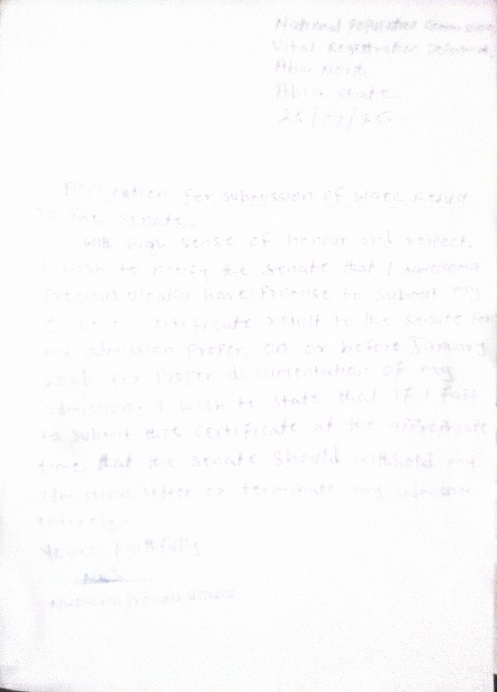 National Population Commission
Vital Registration Department
Aba North
Abia State
25/07/25.
Application for submission of Waec Result
To The senate.
With high sense of honour and respect,
I wish to notify the senate that I
Precious have Promise to submit my
Certificate result to the senate for
my admission proper, on or before January
2026 for proper documentation of my
admission. I wish to state that if I fail
to submit this certificate at the appropriate
time, that the senate should withhold my
admission letter or terminate my admission
entirely.
Yours faithfully
Precious